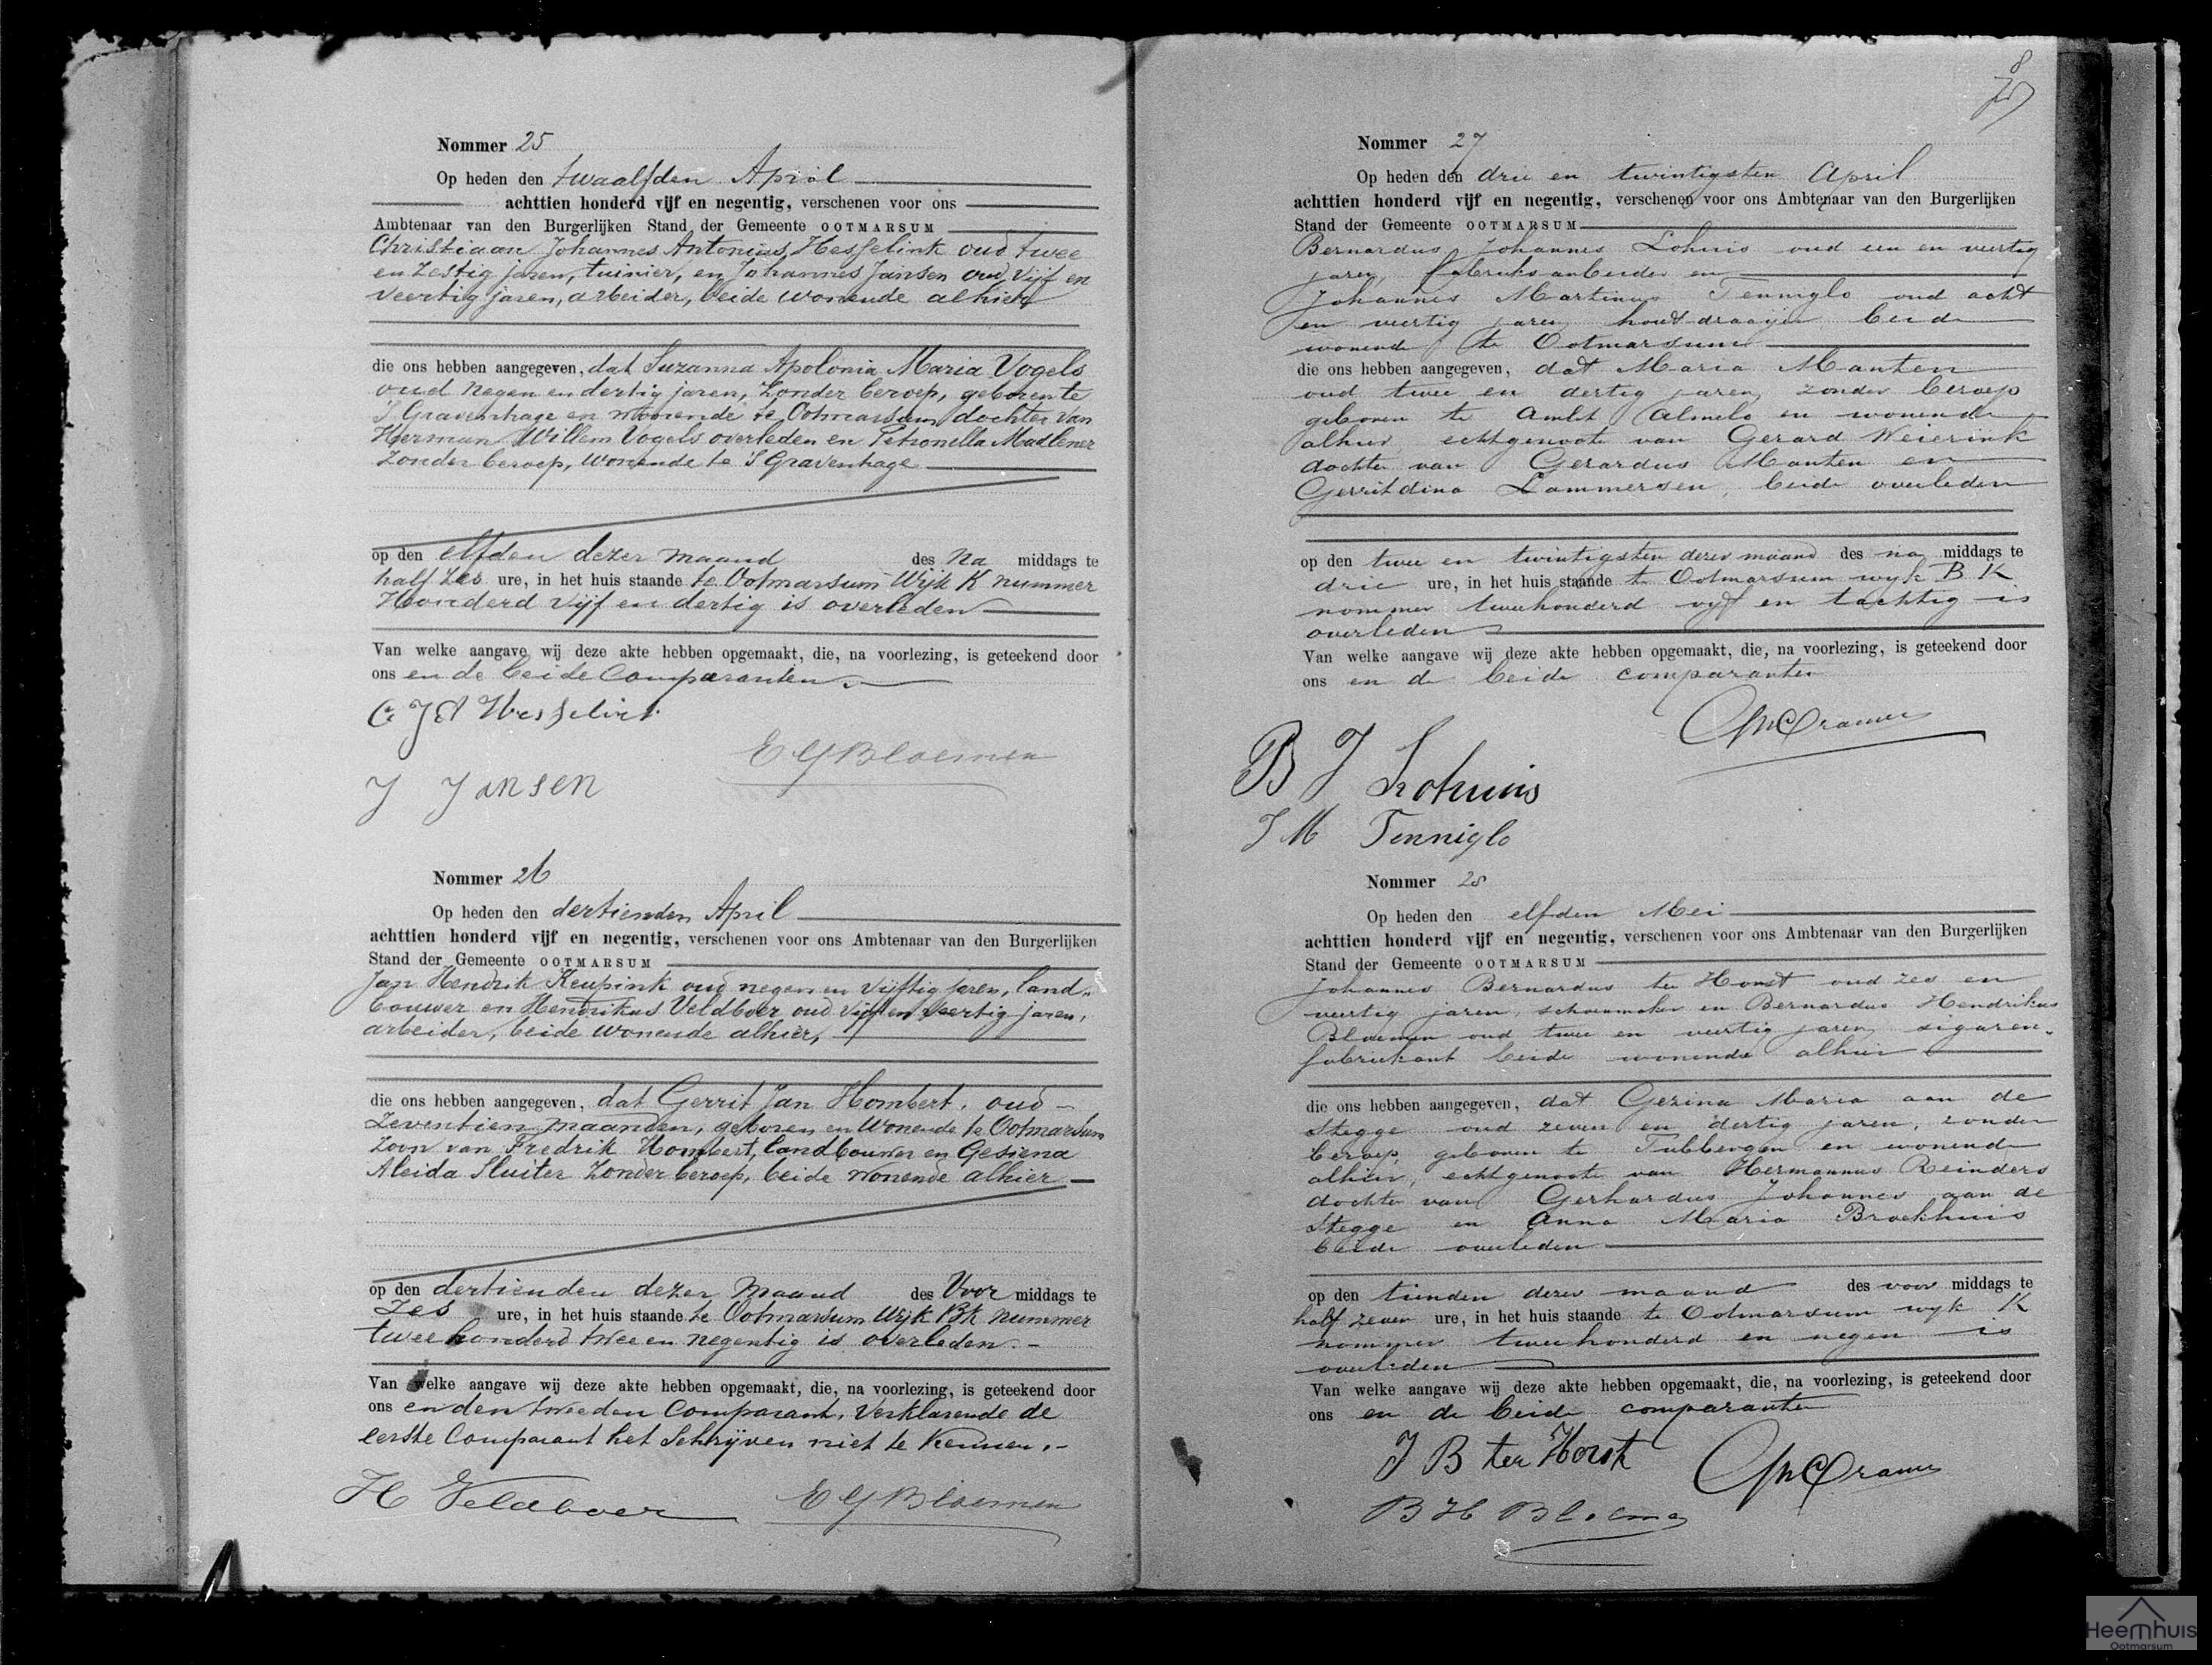 Nommer 25
Op heden den twaalfden April
achttien honderd vijf en negentig, verschenen voor ons
Ambtenaar van den Burgerlijken Stand der Gemeente OOTMARSUM
Christiaan Johannes Antonius Hesselink oud twee
en Zestig jaren, tuinier, en Johannes Jansen oud Vijf en
Veertig jaren, arbeider, beide wonende alhier
die ons hebben aangegeven, dat Suzanna Apolonia Maria Vogels
oud negen en dertig jaren, Zonder beroep, geboren te
'S Gravenhage en wonende te Ootmarsum dochter van
Herman Willem Vogels overleden en Petronella Madlener
Zonder beroep, wonende te 'S Gravenhage
op den elfden dezer maand des Na middags te
half Zes ure, in het huis staande te Ootmarsum Wijk K nummer
Honderd Vijf en dertig is overleden
Van welke aangave wij deze akte hebben opgemaakt, die, na voorlezing, is geteekend door
ons en de beide Comparanten.
C J A Hesselink
E G Bloemen
J Jansen
Nommer 26
Op heden den dertienden April
achttien honderd vijf en negentig, verschenen voor ons Ambtenaar van den Burgerlijken
Stand der Gemeente OOTMARSUM
Jan Hendrik Keupink oud negen en Vijftig jaren, land-
bouwer en Hendrikus Veldboer oud Vijf en Veertig jaren,
arbeider, beide wonende alhier,
die ons hebben aangegeven, dat Gerrit Jan Hombert, oud
Zeventien maanden, geboren en Wonende te Ootmarsum
Zoon van Fredrik Hombert, landbouwer en Gesiena
Aleida Sluiter Zonder beroep, beide wonende alhier
op den dertienden dezer Maand des Voor middags te
Zes ure, in het huis staande te Ootmarsum Wijk Bk nummer
twee honderd twee en negentig is overleden.
Van welke aangave wij deze akte hebben opgemaakt, die, na voorlezing, is geteekend door
ons en den tweeden Comparant, Verklarende de
eerste Comparant het Schrijven niet te Kennen.
H Veldboer E G Bloemen
8
Nommer 27
Op heden den drie en twintigsten April
achttien honderd vijf en negentig, verschenen voor ons Ambtenaar van den Burgerlijken
Stand der Gemeente OOTMARSUM
Bernardus Johannes Lohuis oud een en veertig
jaren, fabrieksarbeider en
Johannes Martinus Tenniglo oud acht
en veertig jaren houtdraaijer beide
wonende te Ootmarsum
die ons hebben aangegeven, dat Maria Manten
oud twee en dertig jaren, zonder beroep
geboren te Ambt Almelo en wonende
alhier, echtgenoote van Gerard Weierink
dochter van Gerardus Manten en
Gerritdina Lammersen, beide overleden
op den twee en twintigsten dezer maand des na middags te
drie ure, in het huis staande te Ootmarsum wijk B K
nommer tweehonderd vijf en tachtig is
overleden
Van welke aangave wij deze akte hebben opgemaakt, die, na voorlezing, is geteekend door
ons en de beide comparanten
Cramer
B J Lohuis
J M Tenniglo
Nommer 28
Op heden den elfden Mei
achttien honderd vijf en negentig, verschenen voor ons Ambtenaar van den Burgerlijken
Stand der Gemeente OOTMARSUM
Johannes Bernardus ter Horst oud zes en
veertig jaren, schoenmaker en Bernardus Hendrikus
Bloemen oud twee en veertig jaren, sigaren-
fabriekant beide wonende alhier
die ons hebben aangegeven, dat Gezina Maria aan de
Stegge oud zeven en dertig jaren, zonder
beroep, geboren te Tubbergen en wonende
alhier, echtgenoote van Hermannus Reinders
dochter van Gerhardus Johannes aan de
Stegge en Anna Maria Broekhuis
beide overleden
op den tienden dezer maand des voor middags te
half zeven ure, in het huis staande te Ootmarsum wijk K
nommer tweehonderd en negen is
overleden
Van welke aangave wij deze akte hebben opgemaakt, die, na voorlezing, is geteekend door
ons en de beide comparanten
J B ter Horst Cramer
B H Bloemen
Heemhuis
Ootmarsum